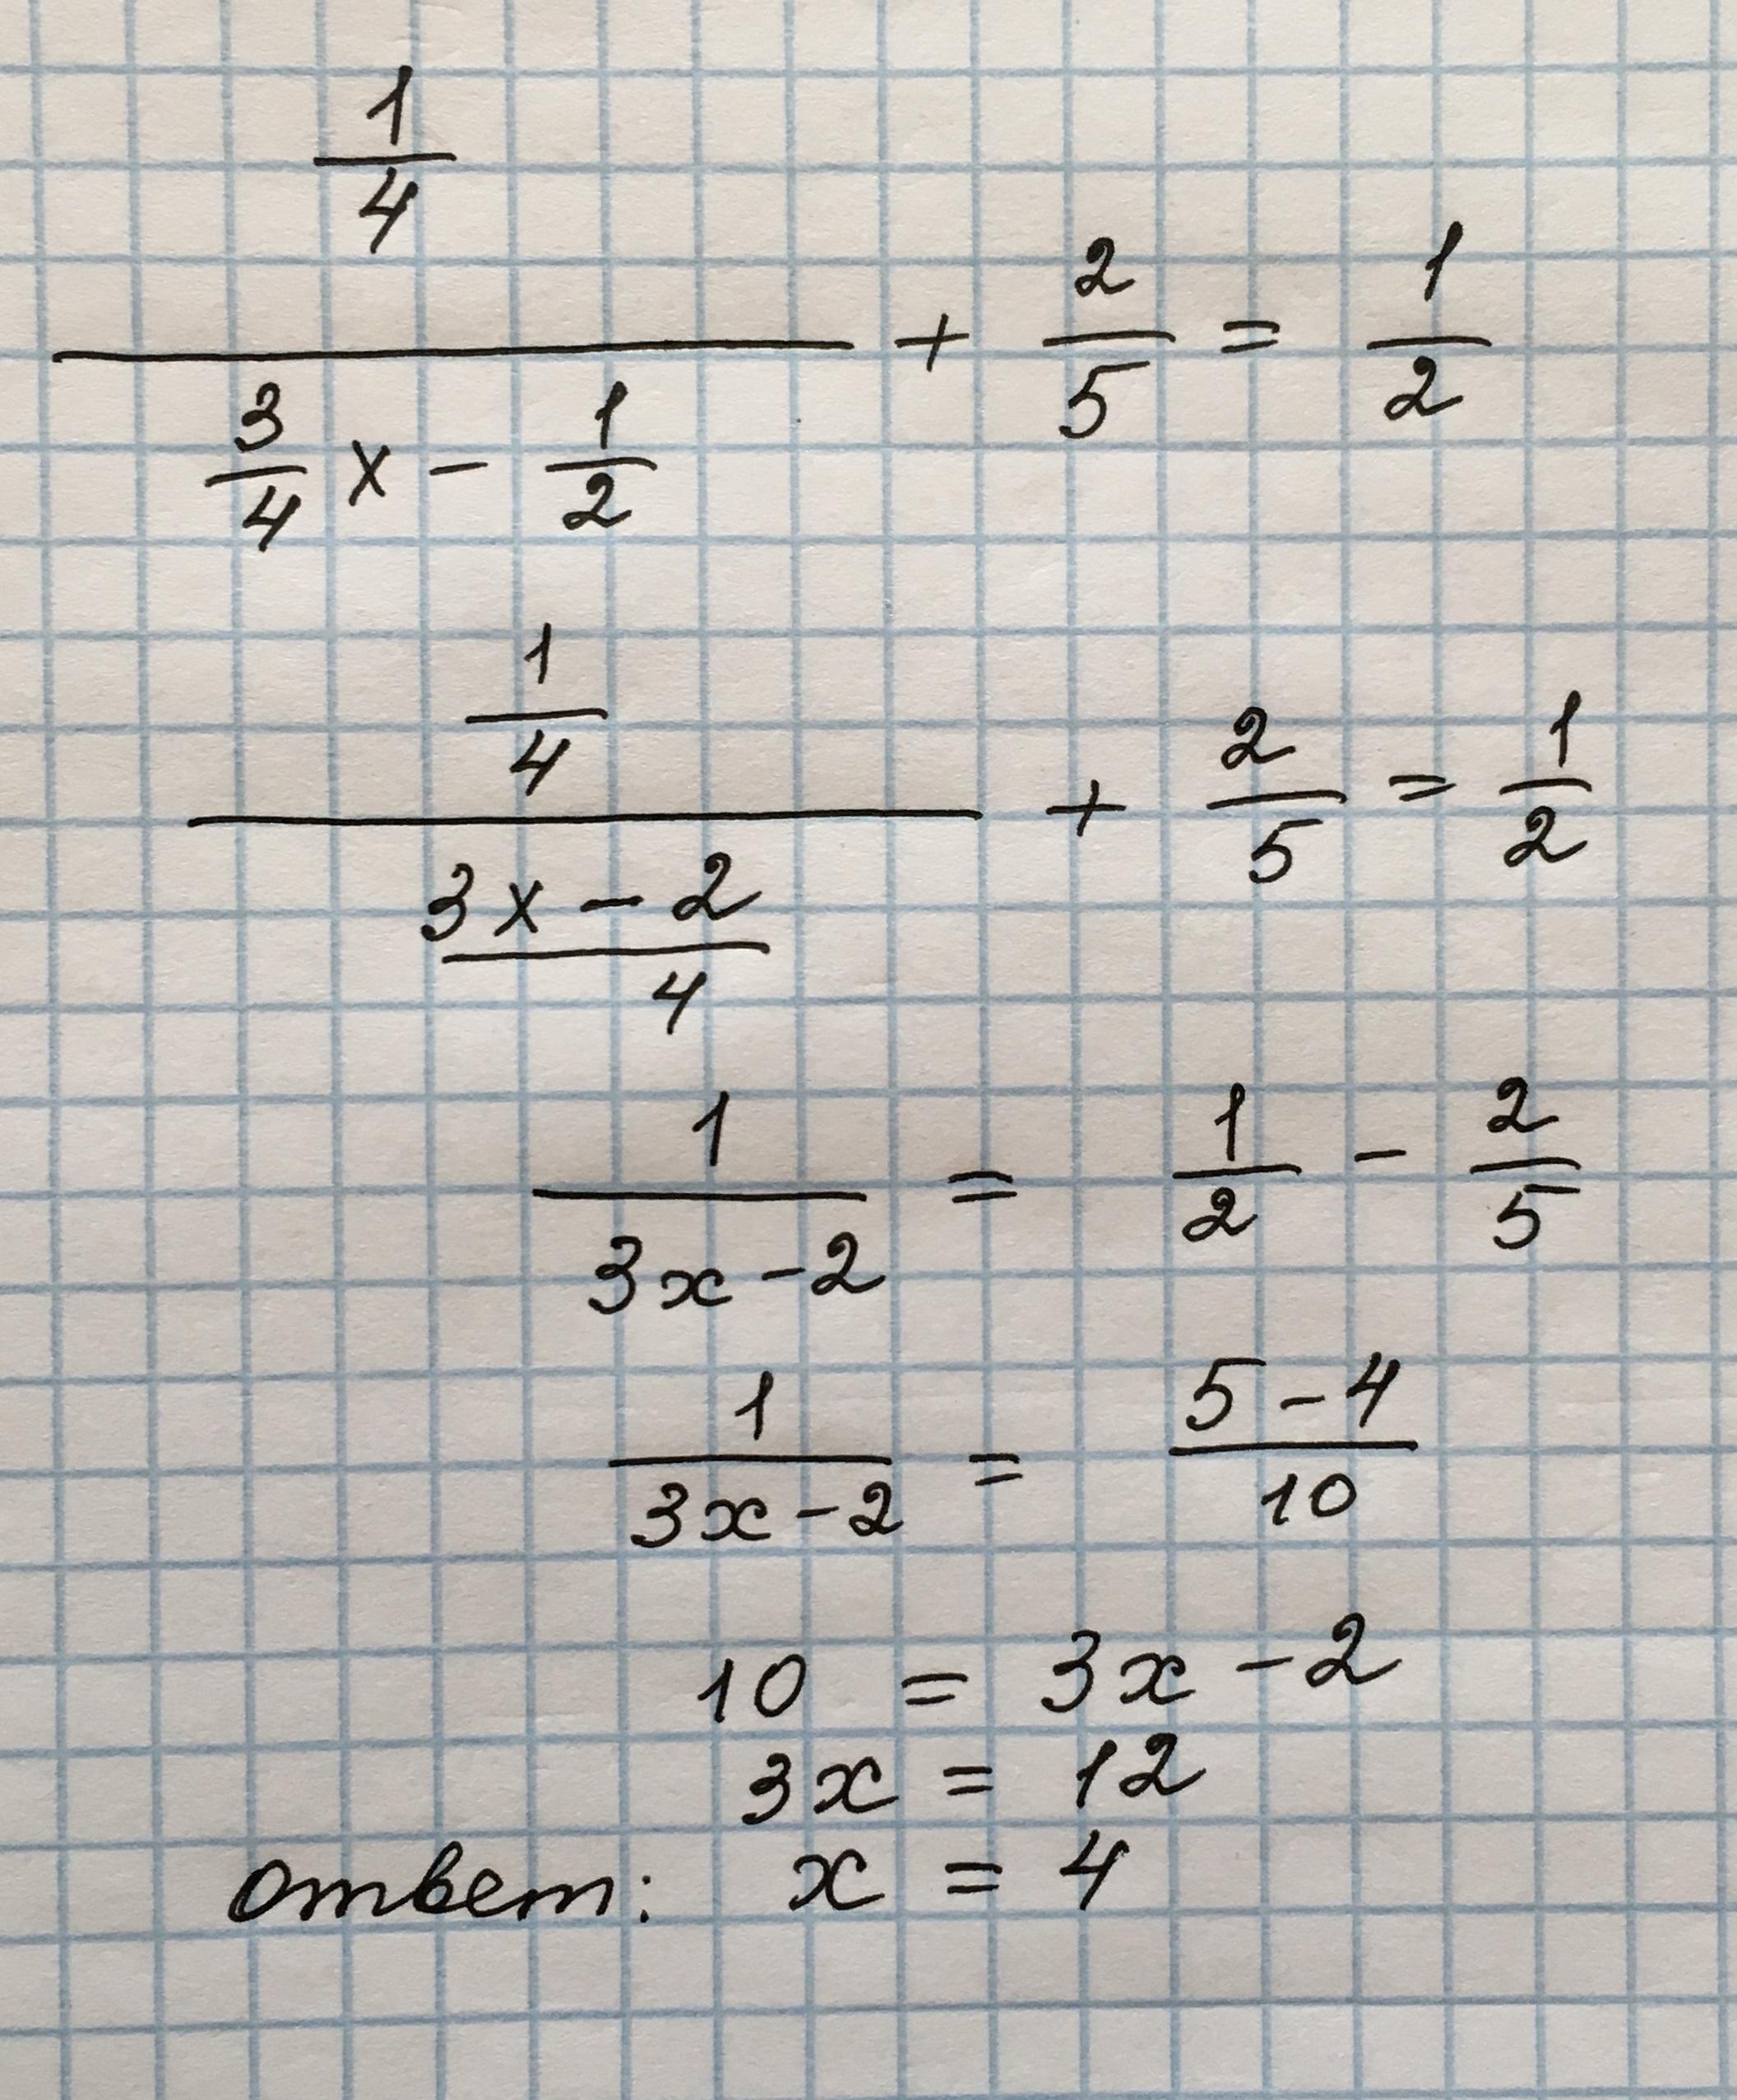 (1/4)/(3/4 x - 1/2) + 2/5 = 1/2
(1/4)/((3x - 2)/4) + 2/5 = 1/2
1/(3x - 2) = 1/2 - 2/5
1/(3x - 2) = (5 - 4)/10
10 = 3x - 2
3x = 12
ответ: x = 4